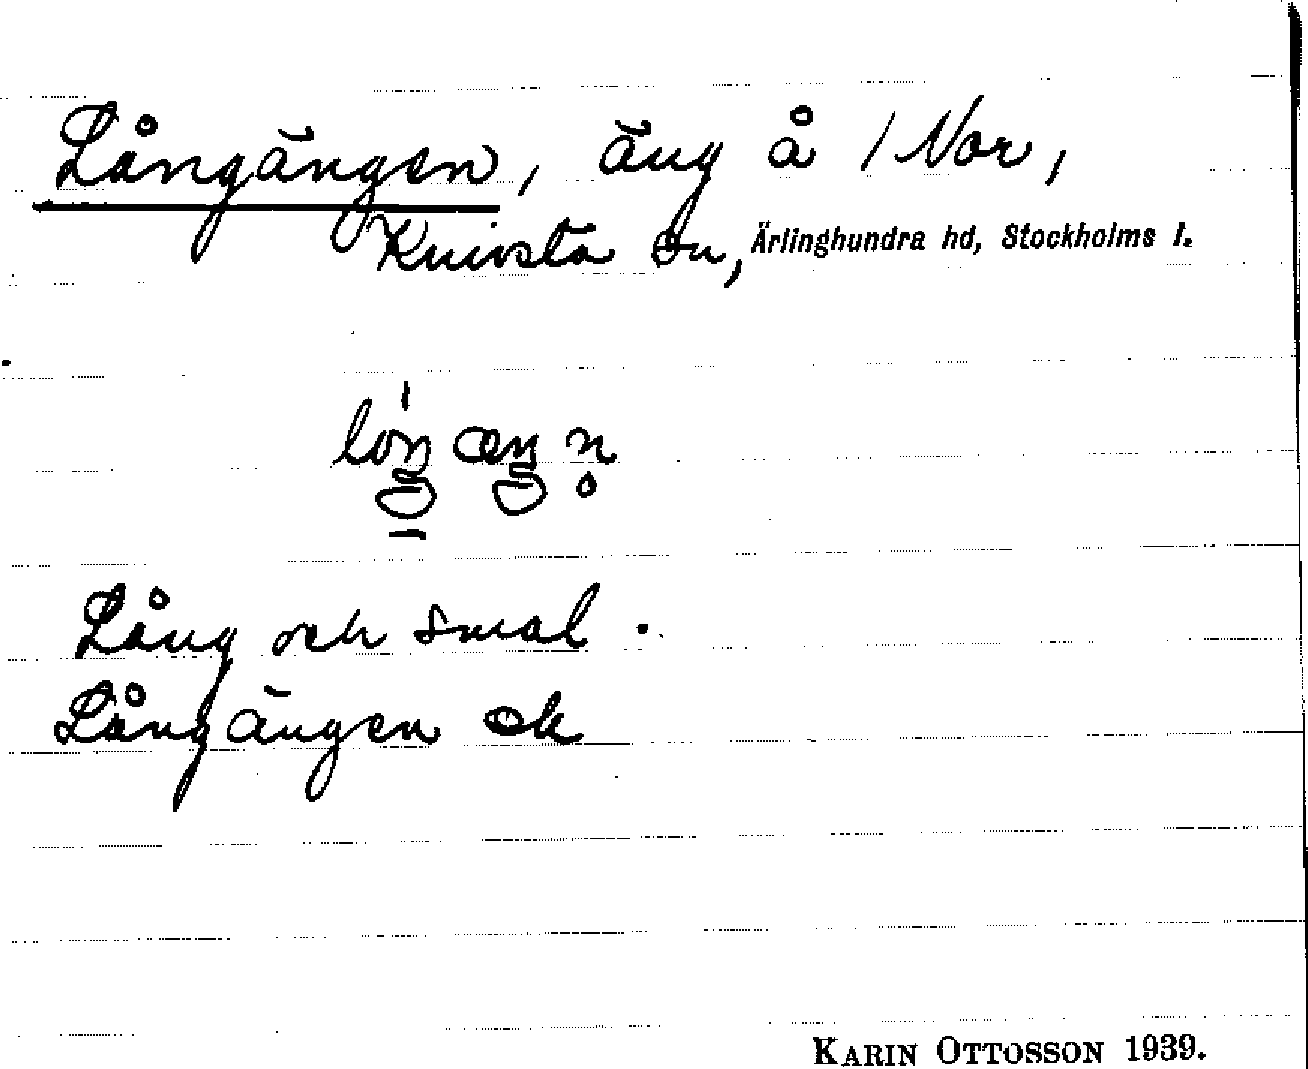 Långängen, äng å 1 Nor,
Knivsta sn, Ärlinghundra hd, Stockholms l.
lóŋæŋn̥
Lång och smal.
Långängen ek
KARIN OTTOSSON 1939.